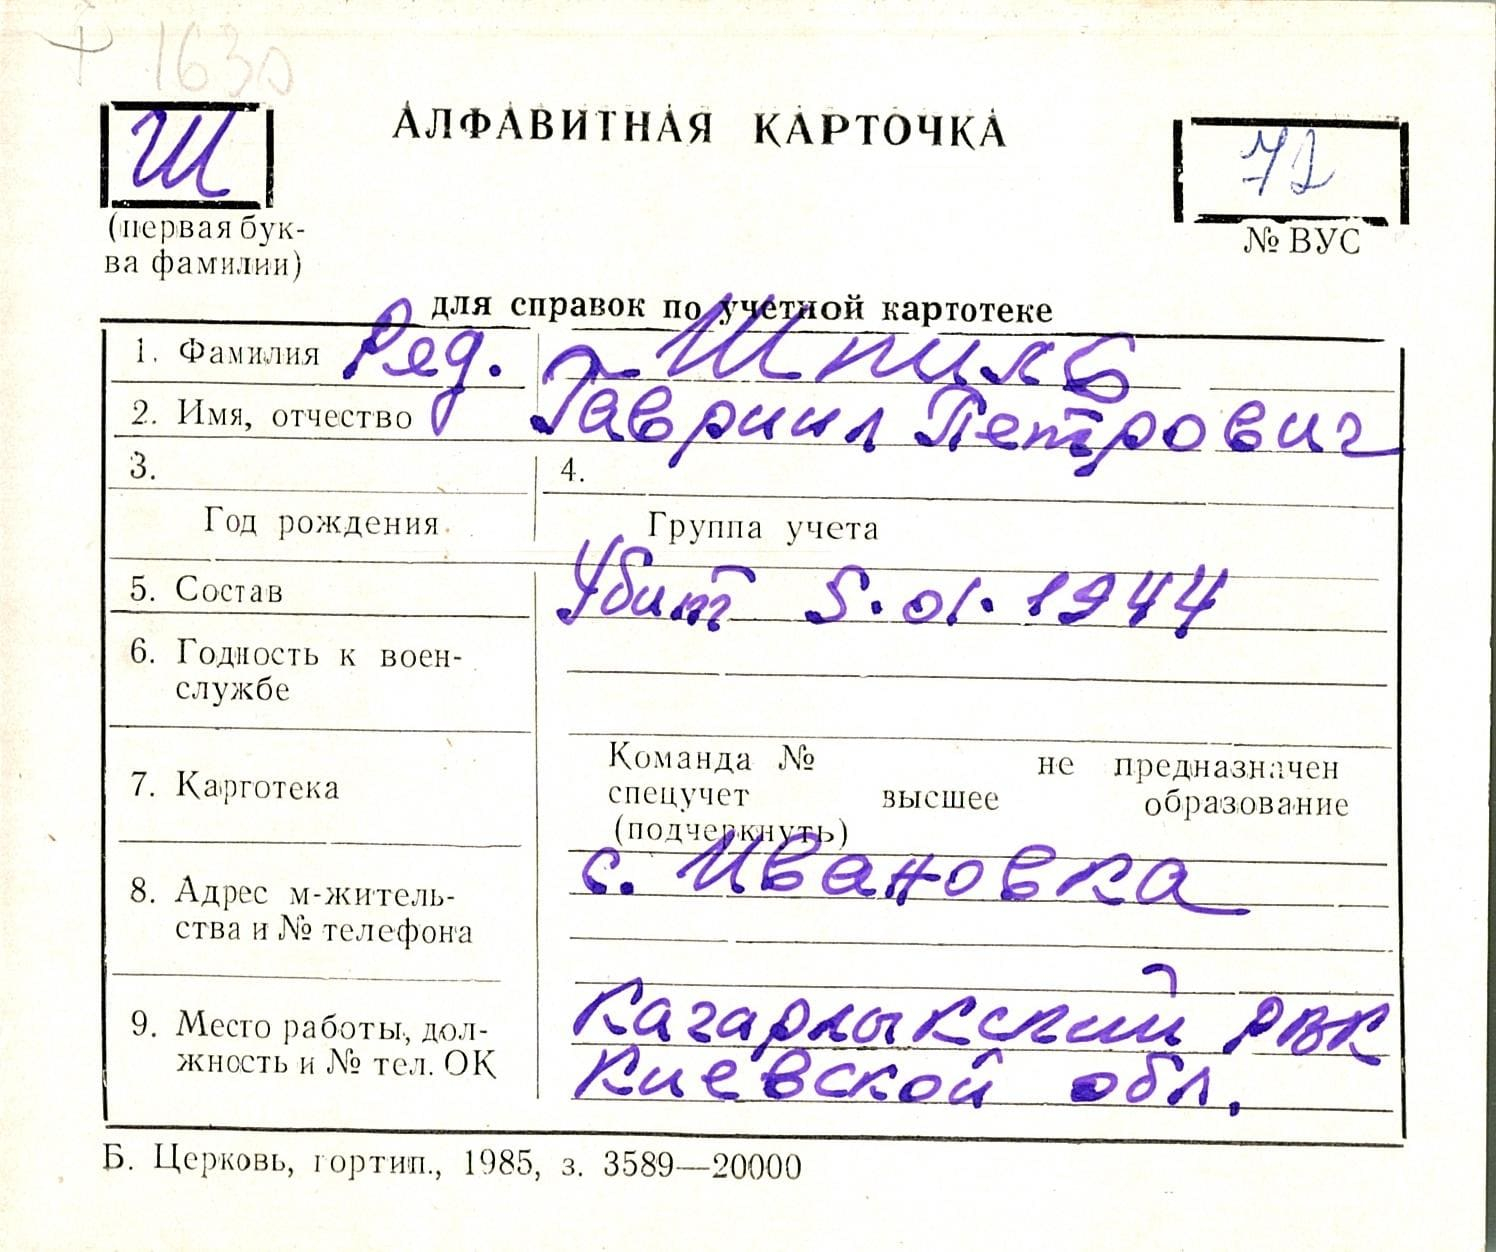 + 1630
Ш
АЛФАВИТНАЯ КАРТОЧКА
72
(первая бук-
ва фамилии)
№ ВУС
для справок по учетной картотеке
1. Фамилия Ряд. Шпиль
2. Имя, отчество Гавриил Петрович
3.
4.
Год рождения
Группа учета
5. Состав
Убит 5.01.1944
6. Годность к воен-
службе
7. Картотека
Команда № не предназначен
спецучет высшее образование
(подчеркнуть)
8. Адрес м-житель-
ства и № телефона
с. Ивановка
9. Место работы, дол-
жность и № тел. ОК
Кагарлыкский РВК
Киевской обл.
Б. Церковь, гортип., 1985, з. 3589—20000